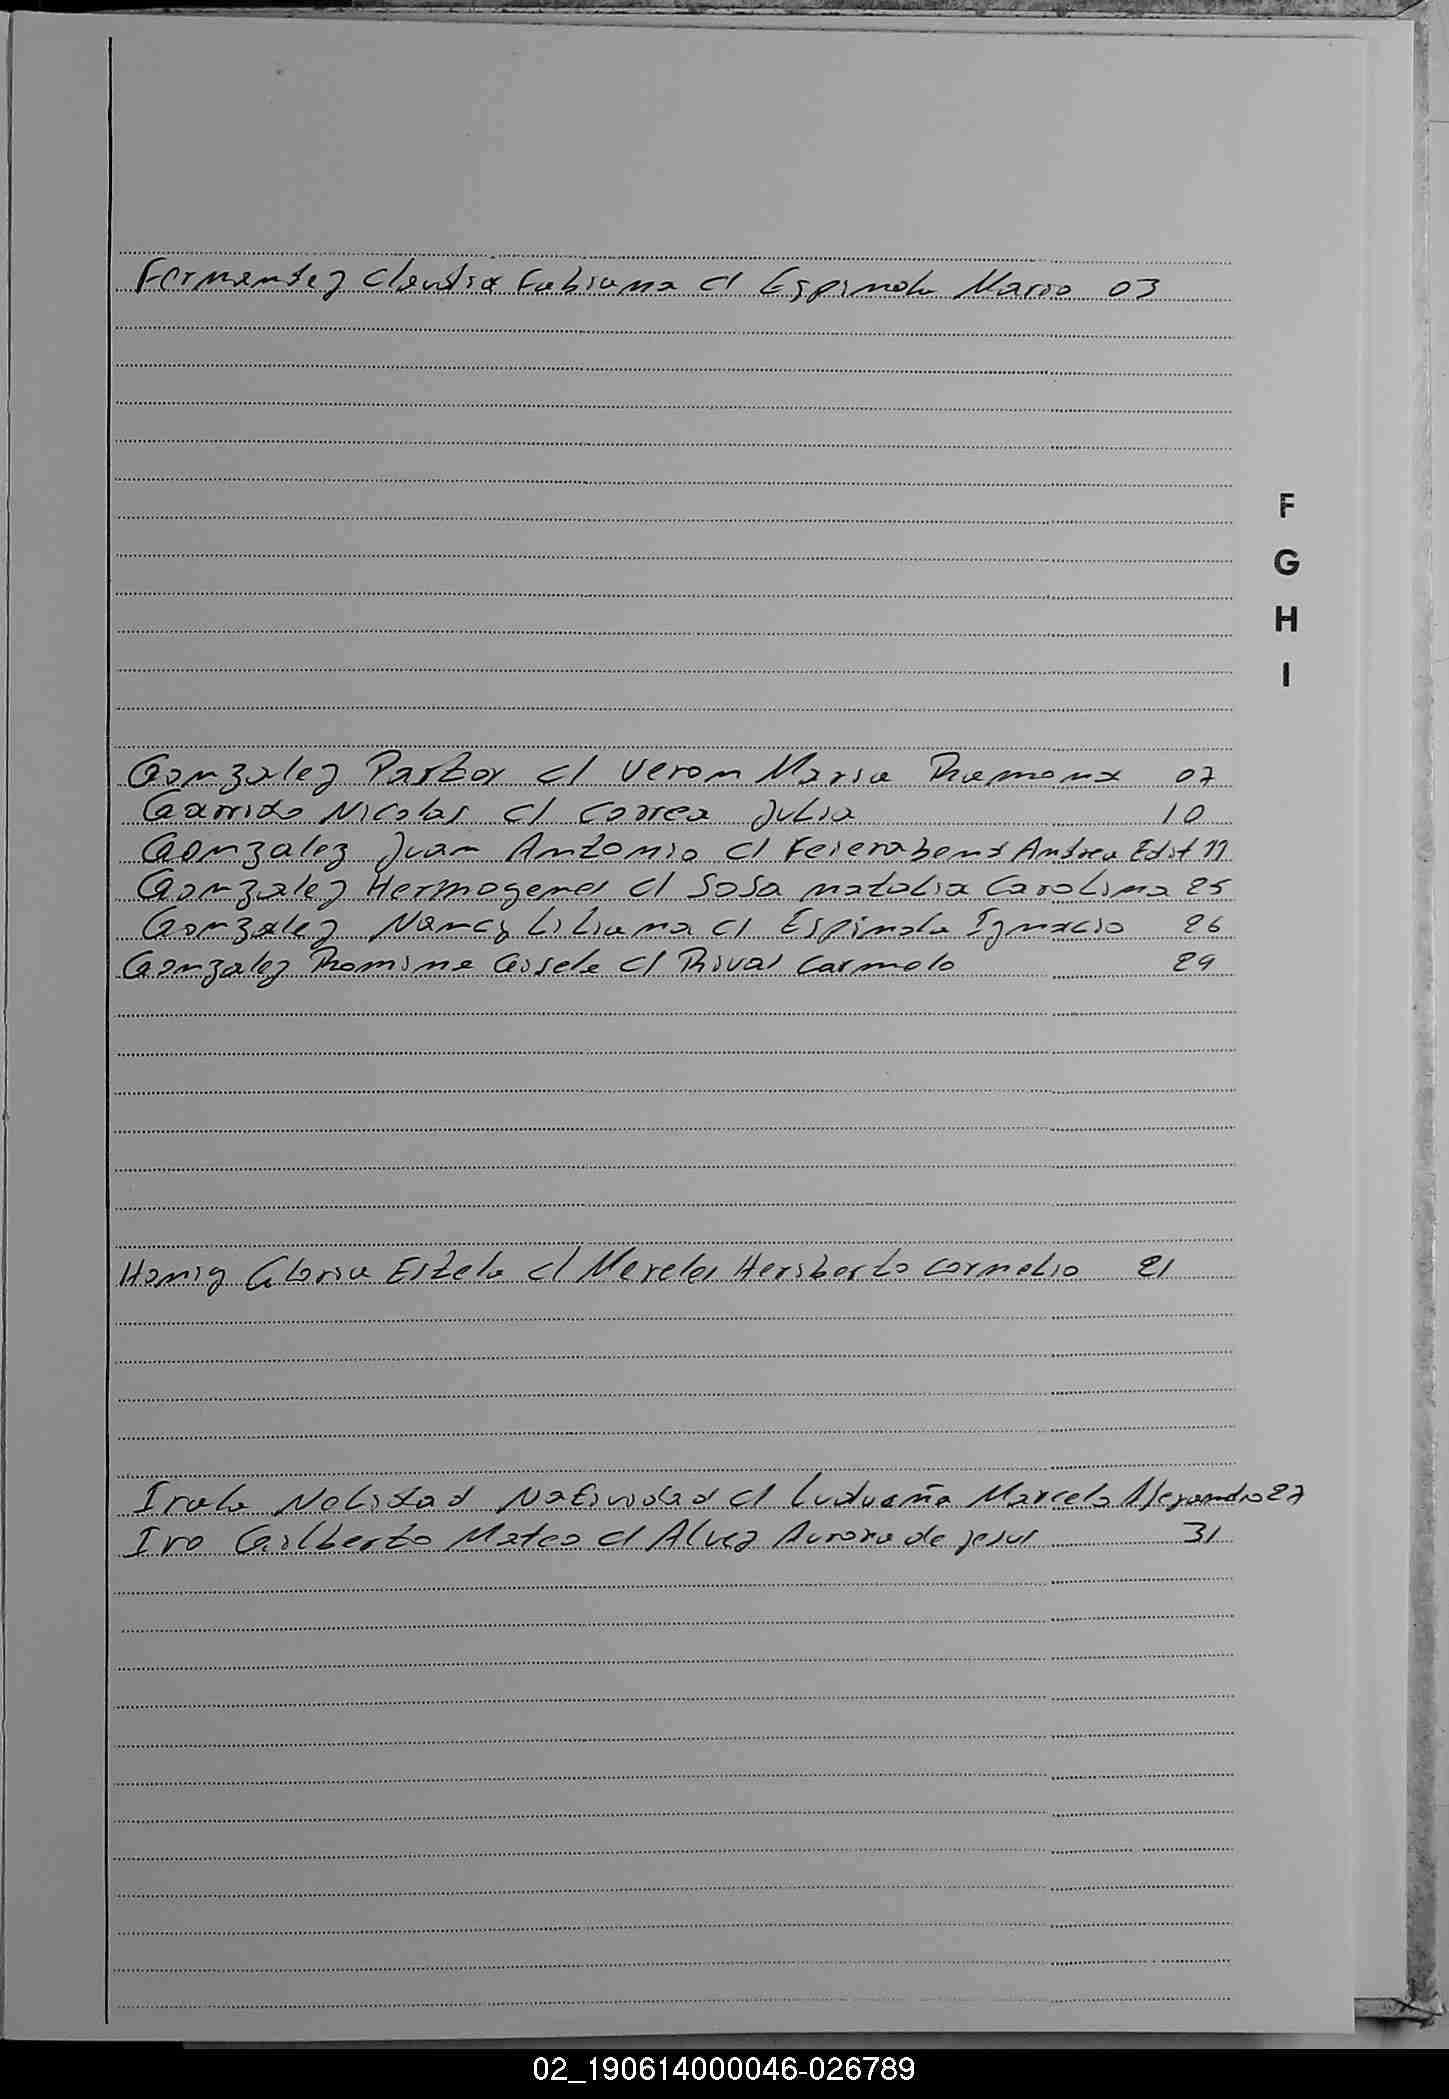 Fernandez Claudia Fabiana c/ Espinola Mario 03
F
G
H
I
Gonzalez Pastor c/ Veron Maria Ramona 07
Garrido Nicolas c/ Correa Julia 10
Gonzalez Juan Antonio c/ Feierabend Andrea Edit 11
Gonzalez Hermogenes c/ Sosa Natalia Carolina 25
Gonzalez Nancy Liliana c/ Espinola Ignacio 26
Gonzalez Romina Gisele c/ Rivas Carmelo 29
Honig Gloria Estela c/ Mereles Heriberto Cornelio 21
Irala Nelidad Natividad c/ Ludueña Marcelo Alejandro 27
Iro Gilberto Mateo c/ Alvez Aurora de jesus 31
02_190614000046-026789